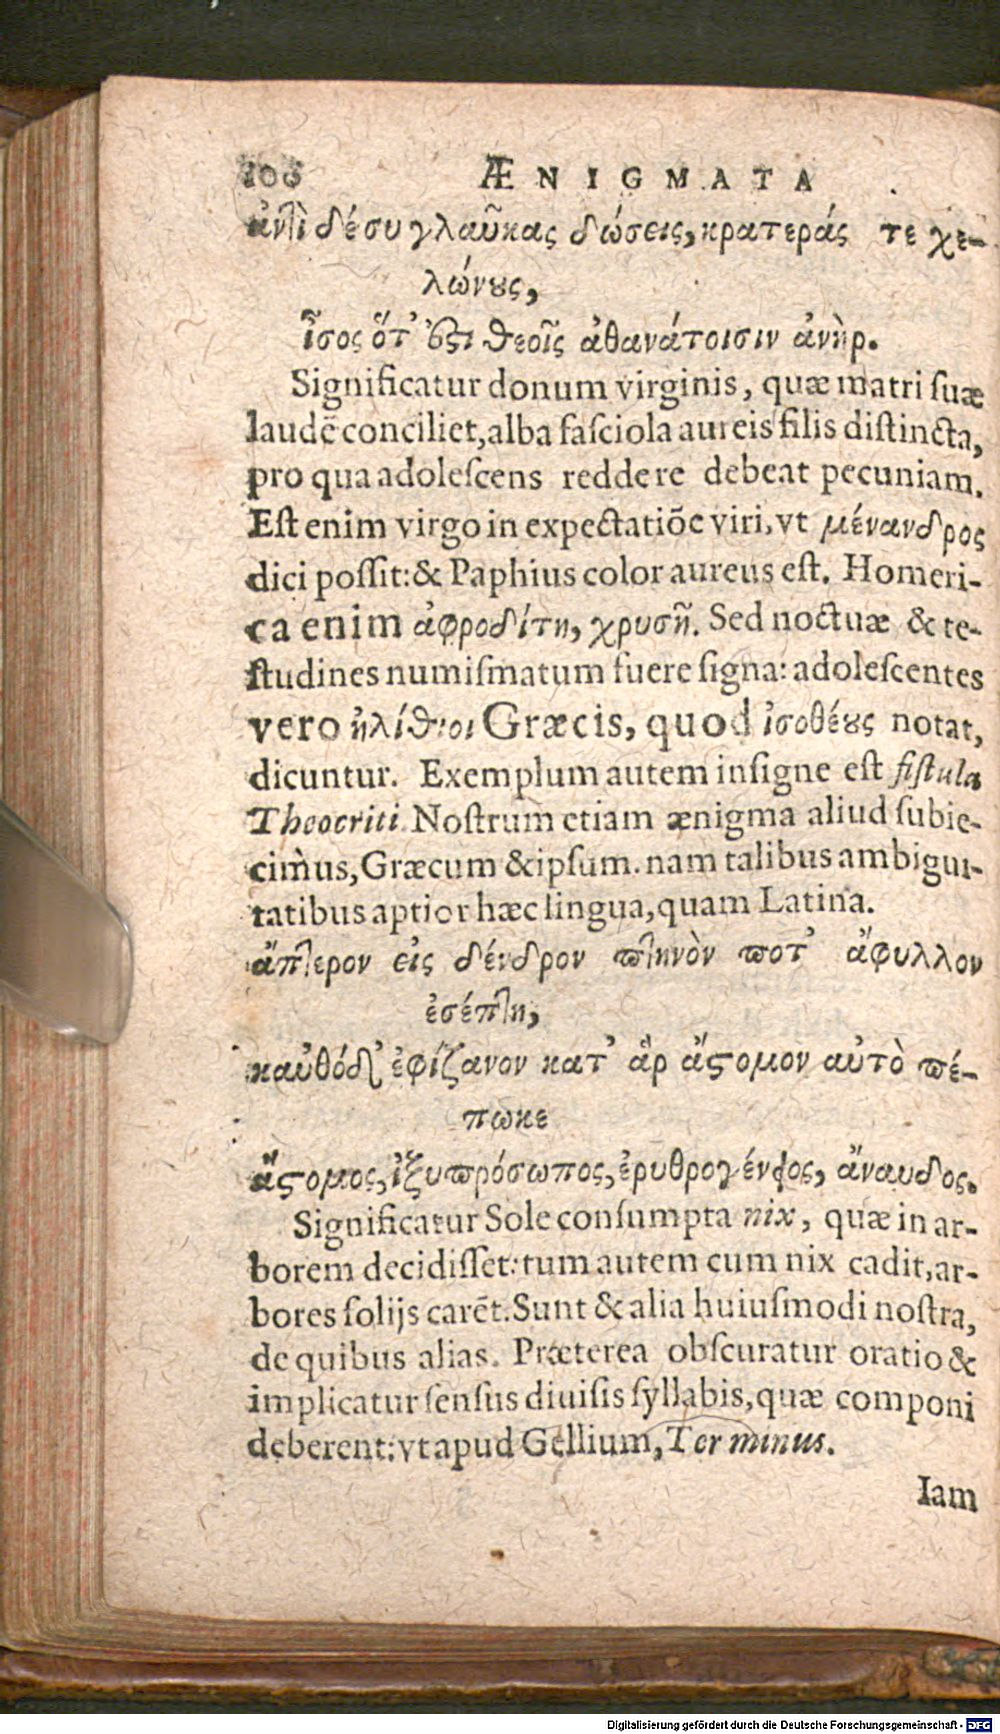 106 ÆNIGMATA
ἀντὶ δέ συ γλαῦκας δώσεις, κρατεράς τε χε-
λώνους,
ἶσος ὅτ' ἐστὶ θεοῖς ἀθανάτοισιν ἀνὴρ.
Significatur donum virginis, quæ matri ſuæ
laudē conciliet, alba faſciola aureis filis diſtincta,
pro qua adoleſcens reddere debeat pecuniam.
Eſt enim virgo in expectatiōe viri, vt μένανδρος
dici poſsit: & Paphius color aureus eſt. Homeri-
ca enim ἀφροδίτη, χρυσῆ. Sed noctuæ & te-
ſtudines numiſmatum fuere ſigna: adoleſcentes
vero ἠλίθιοι Græcis, quod ἰσοθέους notat,
dicuntur. Exemplum autem inſigne eſt fiſtula
Theocriti. Noſtrum etiam ænigma aliud ſubie-
cimus, Græcum & ipſum. nam talibus ambigui-
tatibus aptior hæc lingua, quam Latina.
ἄπτερον εἰς δένδρον πτηνὸν ποτ' ἄφυλλον
ἐσέπτη,
καὐθόδ' ἐφίζανον κατ' ἂρ ἄστομον αὐτὸ πέ-
πωκε
ἄστομος, ἰξυπρόσωπος, ἐρυθρογένειος, ἄναυδος.
Significatur Sole conſumpta nix, quæ in ar-
borem decidiſſet: tum autem cum nix cadit, ar-
bores folijs carēt. Sunt & alia huiuſmodi noſtra,
de quibus alias. Præterea obſcuratur oratio &
implicatur ſenſus diuiſis ſyllabis, quæ componi
deberent: vt apud Gellium, Ter minus.
Iam
Digitalisierung gefördert durch die Deutsche Forschungsgemeinschaft - DFG